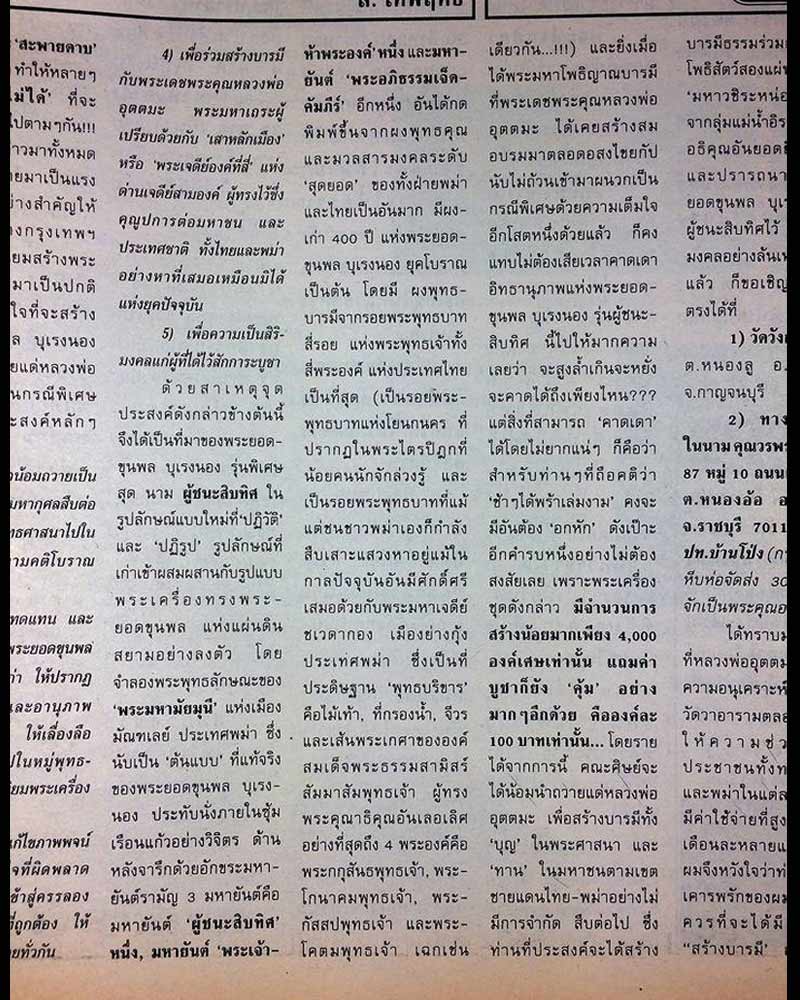 ส. เทพฤทธิ์
'สะพายดาบ'
ทำให้หลายๆ
ที่จะ
ไปตามๆกัน!!!
าวมาทั้งหมด
ายมาเป็นแรง
่างสำคัญให้
งกรุงเทพฯ
ยมสร้างพระ
มาเป็นปกติ
ใจที่จะสร้าง
ล บุเรงนอง
ยแด่หลวงพ่อ
นกรณีพิเศษ
ะสงค์หลักๆ
น้อมถวายเป็น
มหากุศลสืบต่อ
ทธศาสนาไปใน
ามคติโบราณ
ทดแทน และ
พระยอดขุนพล
่า ให้ปรากฏ
และอานุภาพ
ให้เลื่องลือ
ปในหมู่พุทธ-
ียมพระเครื่อง
แก้ไขภาพพจน์
ใจที่ผิดพลาด
ข้าสู่ครรลอง
ที่ถูกต้อง ให้
ายทั่วกัน
4) เพื่อร่วมสร้างบารมี
กับพระเดชพระคุณหลวงพ่อ
อุตตมะ พระมหาเถระผู้
เปรียบด้วยกับ 'เสาหลักเมือง'
หรือ 'พระเจดีย์องค์ที่สี่' แห่ง
ด่านเจดีย์สามองค์ ผู้ทรงไว้ซึ่ง
คุณูปการต่อมหาชน และ
ประเทศชาติ ทั้งไทยและพม่า
อย่างหาที่เสมอเหมือนมิได้
แห่งยุคปัจจุบัน
5) เพื่อความเป็นสิริ-
มงคลแก่ผู้ที่ได้ไว้สักการะบูชา
ด้วยสาเหตุจุด
ประสงค์ดังกล่าวข้างต้นนี้
จึงได้เป็นที่มาของพระยอด-
ขุนพล บุเรงนอง รุ่นพิเศษ
สุด นาม ผู้ชนะสิบทิศ ใน
รูปลักษณ์แบบใหม่ที่'ปฏิวัติ'
และ 'ปฏิรูป' รูปลักษณ์ที่
เก่าเข้าผสมผสานกับรูปแบบ
พระเครื่องทรงพระ-
ยอดขุนพล แห่งแผ่นดิน
สยามอย่างลงตัว โดย
จำลองพระพุทธลักษณะของ
'พระมหามัยมุนี' แห่งเมือง
มัณฑเลย์ ประเทศพม่า ซึ่ง
นับเป็น 'ต้นแบบ' ที่แท้จริง
ของพระยอดขุนพล บุเรง-
นอง ประทับนั่งภายในซุ้ม
เรือนแก้วอย่างวิจิตร ด้าน
หลังจารึกด้วยอักขระมหา-
ยันต์รามัญ 3 มหายันต์คือ
มหายันต์ 'ผู้ชนะสิบทิศ'
หนึ่ง, มหายันต์ 'พระเจ้า-
ห้าพระองค์' หนึ่ง และมหา-
ยันต์ 'พระอภิธรรมเจ็ด-
คัมภีร์' อีกหนึ่ง อันได้กด
พิมพ์ขึ้นจากผงพุทธคุณ
และมวลสารมงคลระดับ
'สุดยอด' ของทั้งฝ่ายพม่า
และไทยเป็นอันมาก มีผง-
เก่า 400 ปี แห่งพระยอด-
ขุนพล บุเรงนอง ยุคโบราณ
เป็นต้น โดยมี ผงพุทธ-
บารมีจากรอยพระพุทธบาท
สี่รอย แห่งพระพุทธเจ้าทั้ง
สี่พระองค์ แห่งประเทศไทย
เป็นที่สุด (เป็นรอยพระ-
พุทธบาทแห่งโยนกนคร ที่
ปรากฏในพระไตรปิฎกที่
น้อยคนนักจักล่วงรู้ และ
เป็นรอยพระพุทธบาทที่แม้
แต่ชนชาวพม่าเองก็กำลัง
สืบเสาะแสวงหาอยู่แม้ใน
กาลปัจจุบันอันมีศักดิ์ศรี
เสมอด้วยกับพระมหาเจดีย์
ชเวดากอง เมืองย่างกุ้ง
ประเทศพม่า ซึ่งเป็นที่
ประดิษฐาน 'พุทธบริขาร'
คือไม้เท้า, ที่กรองน้ำ, จีวร
และเส้นพระเกศาขององค์
สมเด็จพระธรรมสามิสร์
สัมมาสัมพุทธเจ้า ผู้ทรง
พระคุณาธิคุณอันเลอเลิศ
อย่างที่สุดถึง 4 พระองค์คือ
พระกกุสันธพุทธเจ้า, พระ-
โกนาคมพุทธเจ้า, พระ-
กัสสปพุทธเจ้า และพระ-
โคตมพุทธเจ้า เฉกเช่น
เดียวกัน...!!!) และยิ่งเมื่อ
ได้พระมหาโพธิญาณบารมี
ที่พระเดชพระคุณหลวงพ่อ
อุตตมะ ได้เคยสร้างสม
อบรมมาตลอดอสงไขยกัป
นับไม่ถ้วนเข้ามาผนวกเป็น
กรณีพิเศษด้วยความเต็มใจ
อีกโสตหนึ่งด้วยแล้ว ก็คง
แทบไม่ต้องเสียเวลาคาดเดา
อิทธานุภาพแห่งพระยอด-
ขุนพล บุเรงนอง รุ่นผู้ชนะ-
สิบทิศ นี้ไปให้มากความ
เลยว่า จะสูงล้ำเกินจะหยั่ง
จะคาดได้ถึงเพียงไหน???
แต่สิ่งที่สามารถ 'คาดเดา'
ได้โดยไม่ยากแน่ๆ ก็คือว่า
สำหรับท่านๆที่ถือคติว่า
'ช้าๆได้พร้าเล่มงาม' คงจะ
มีอันต้อง 'อกหัก' ดังเป๊าะ
อีกคำรบหนึ่งอย่างไม่ต้อง
สงสัยเลย เพราะพระเครื่อง
ชุดดังกล่าว มีจำนวนการ
สร้างน้อยมากเพียง 4,000
องค์เศษเท่านั้น แถมค่า
บูชาก็ยัง 'คุ้ม' อย่าง
มากๆอีกด้วย คือองค์ละ
100 บาทเท่านั้น... โดยราย
ได้จากการนี้ คณะศิษย์จะ
ได้น้อมนำถวายแด่หลวงพ่อ
อุตตมะ เพื่อสร้างบารมีทั้ง
'บุญ' ในพระศาสนา และ
'ทาน' ในมหาชนตามเขต
ชายแดนไทย-พม่าอย่างไม่
มีการจำกัด สืบต่อไป ซึ่ง
ท่านที่ประสงค์จะได้สร้าง
บารมีธรรมร่วม
โพธิสัตว์สองแผ่น
'มหาวชิระหน่อ
จากลุ่มแม่น้ำอิร
อธิคุณอันยอดยิ
และปรารถนา
ยอดขุนพล บุเร
ผู้ชนะสิบทิศไว้
มงคลอย่างล้นเห
แล้ว ก็ขอเชิญ
ตรงได้ที่
1) วัดวัง
ต.หนองลู อ.
จ.กาญจนบุรี
2) ทาง
ในนาม คุณวรพ
87 หมู่ 10 ถนน
ต.หนองอ้อ อ
จ.ราชบุรี 7011
ปท.บ้านโป่ง (ก
หีบห่อจัดส่ง 30
จักเป็นพระคุณอ
ได้ทราบม
ที่หลวงพ่ออุตตม
ความอนุเคราะห์
วัดวาอารามตลอ
ให้ความช่ว
ประชาชนทั้งท
และพม่าในแต่ล
มีค่าใช้จ่ายที่สูง
เดือนละหลายแ
ผมจึงหวังใจว่าท่
เคารพรักของผม
ควรที่จะได้มี
"สร้างบารมี'